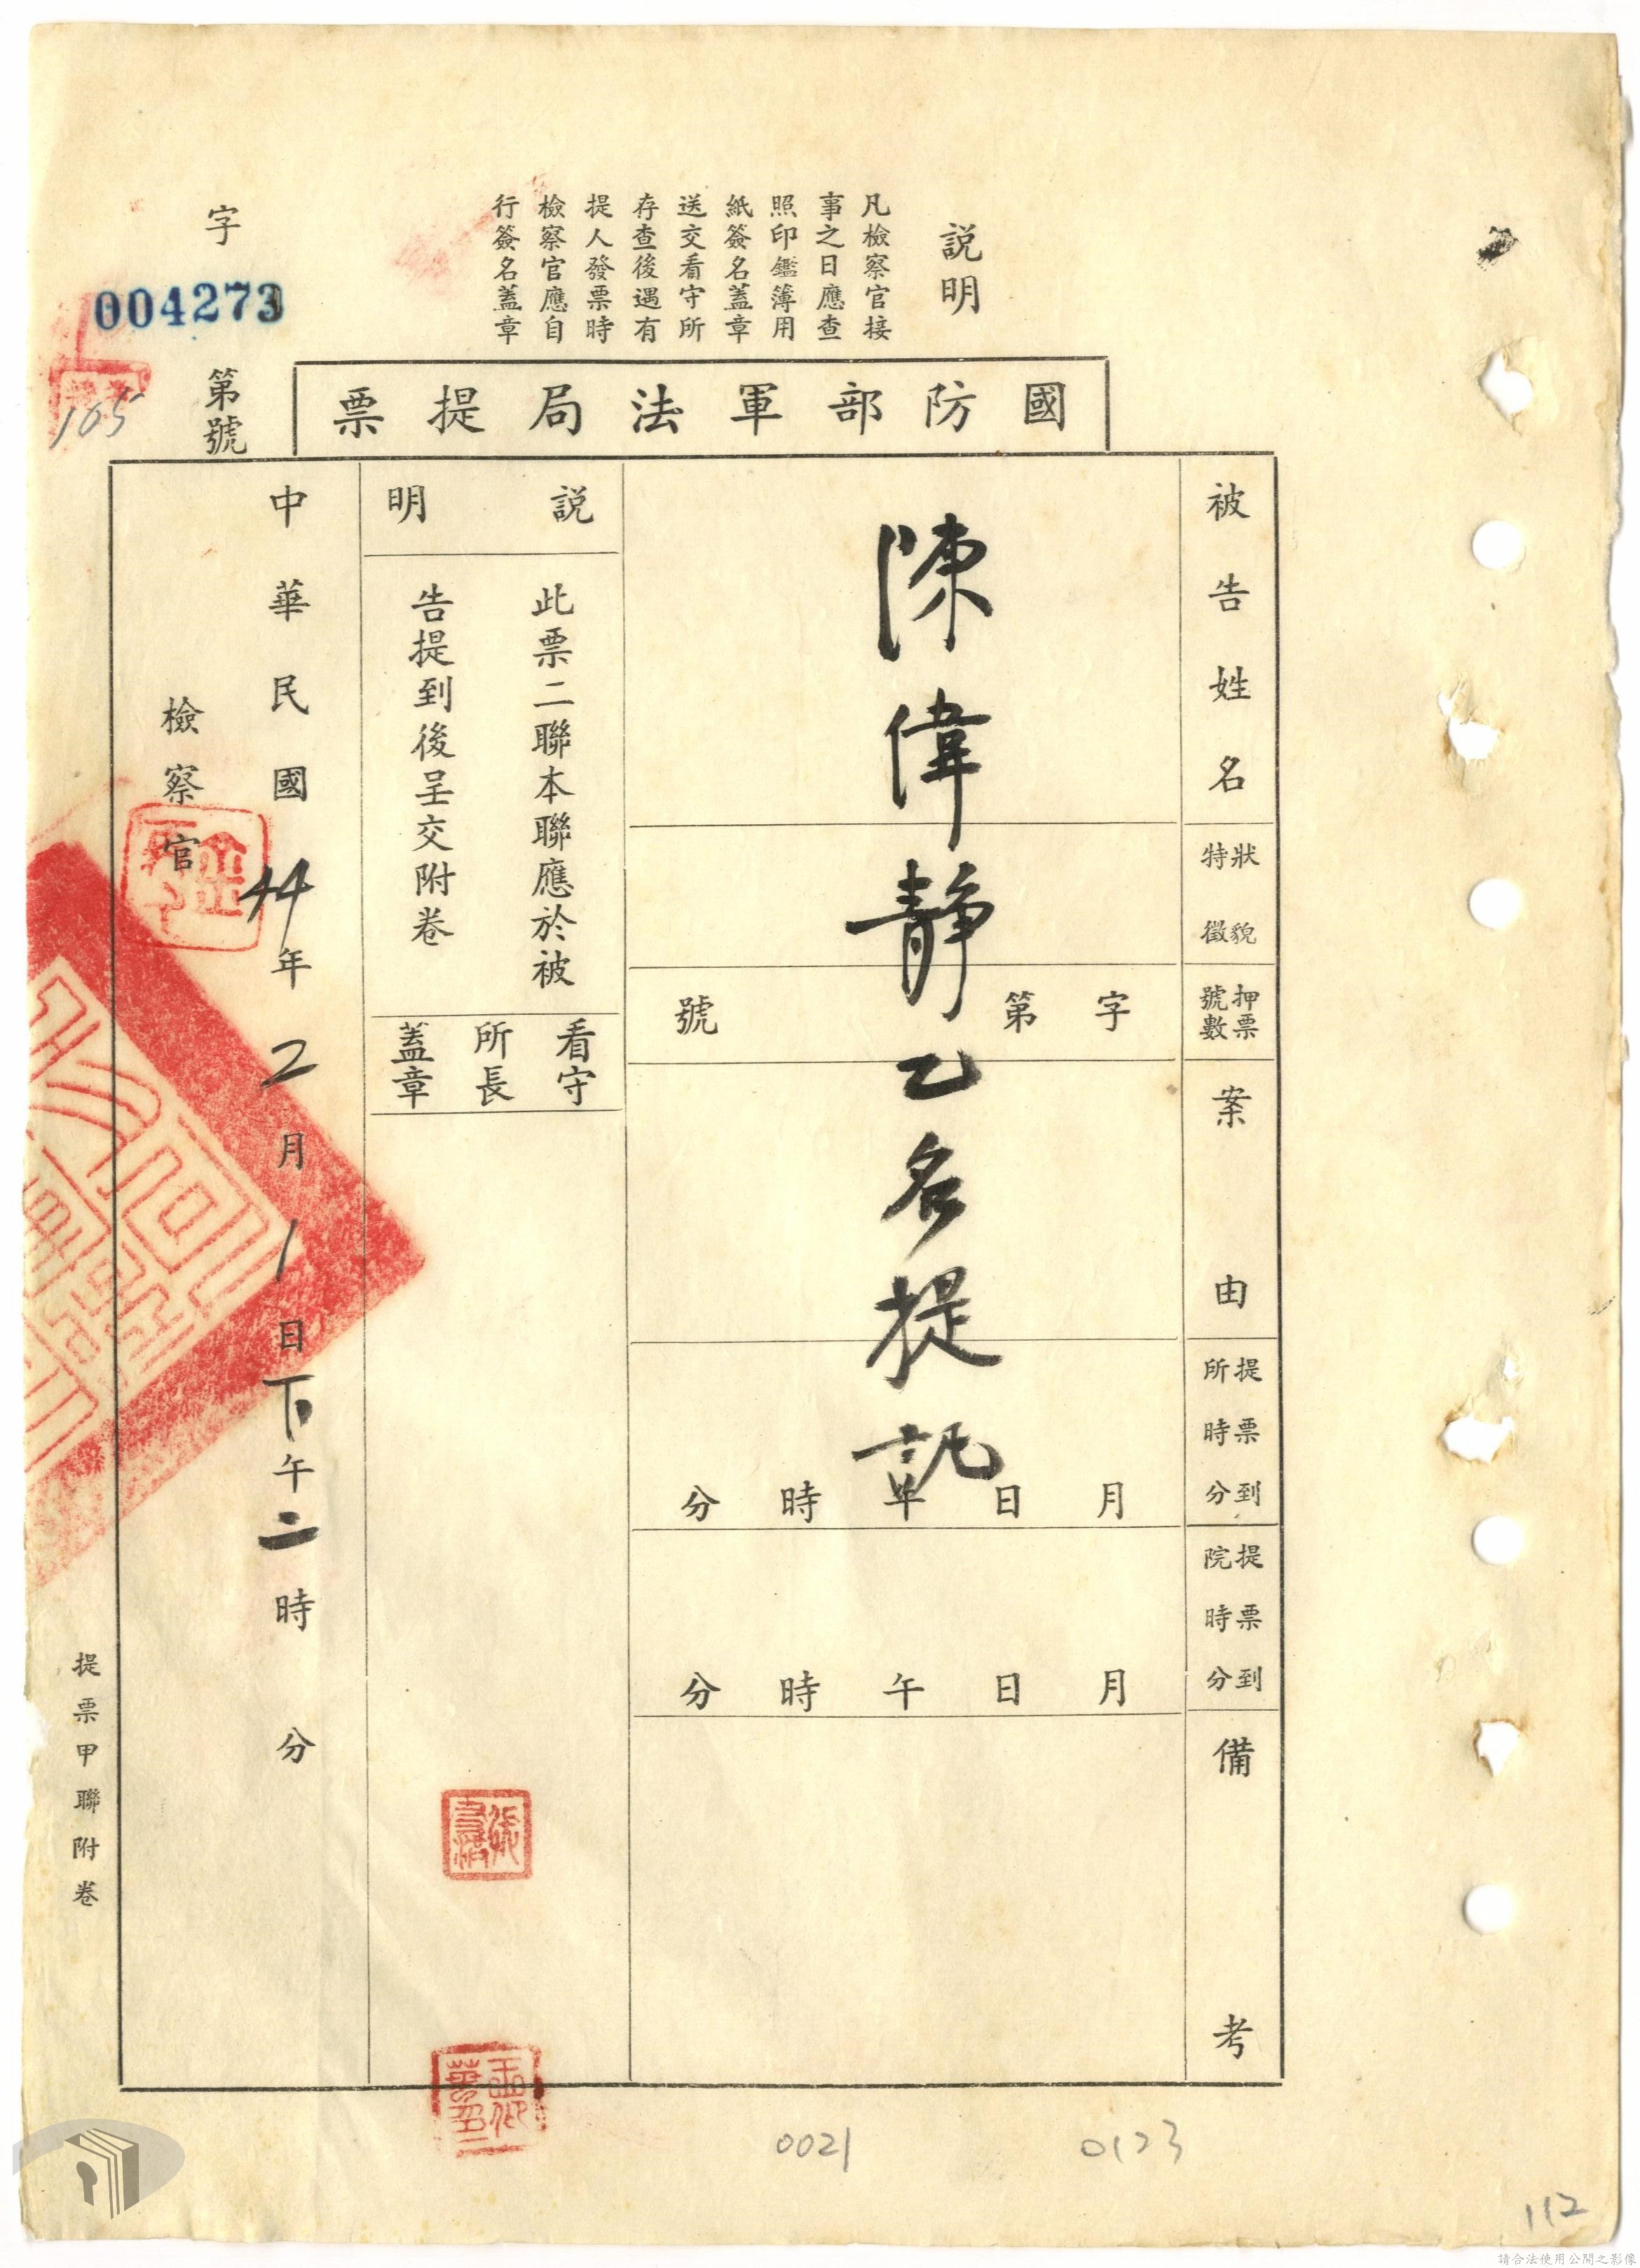 說明
凡檢察官接
事之日應查
照印鑑簿用
紙簽名蓋章
送交看守所
存查後遇有
提人發票時
檢察官應自
行簽名蓋章
字
004273
第號
105
國防部軍法局提票
被告姓名
特徵狀貌
押票號數
案由
提票到所時分
提票到院時分
備考
陳偉靜乙名提訊
字第號
月日午時分
月日午時分
說明
此票二聯本聯應於被
告提到後呈交附卷
看守所長蓋章
中華民國44年2月1日下午二時分
檢察官
提票甲聯附卷
0021
0123
112
請合法使用公開之影像